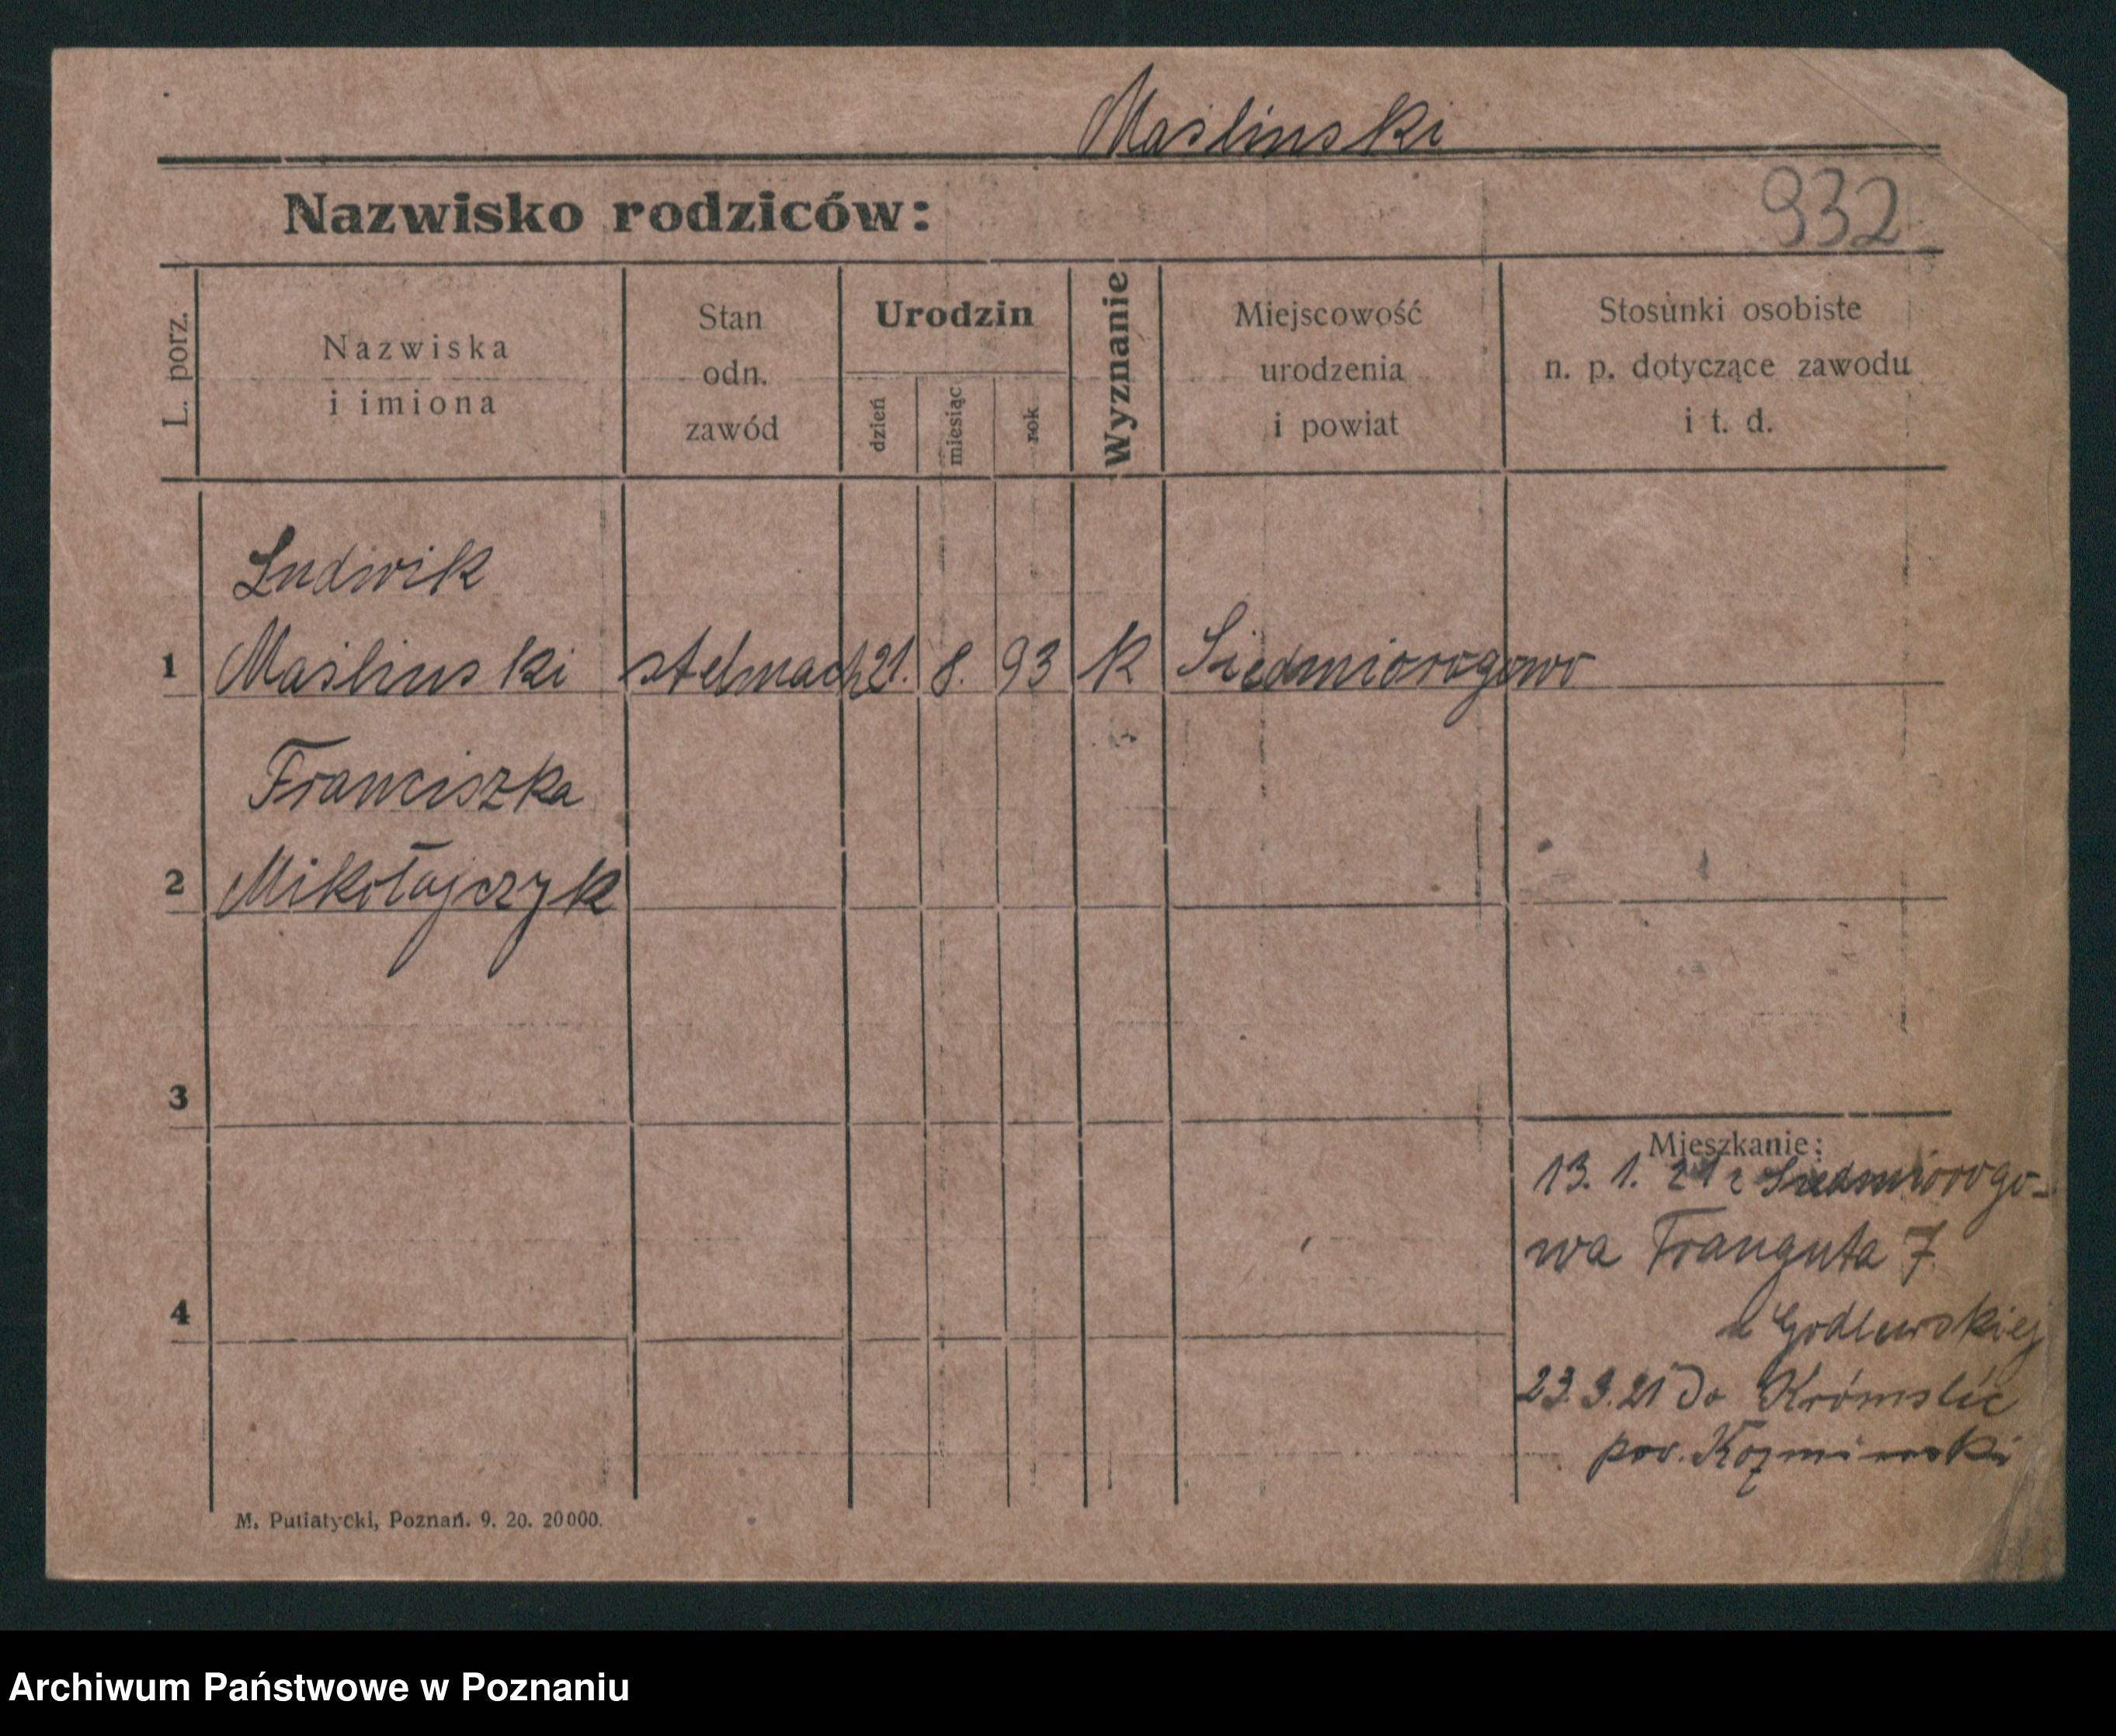 Maślinski
Nazwisko rodziców:
932
L. porz.
Nazwiska
i imiona
Stan
odn.
zawód
Urodzin
dzień
miesiąc
rok
Wyznanie
Miejscowość
urodzenia
i powiat
Stosunki osobiste
n. p. dotyczące zawodu
i t. d.
Ludwik
1 Maślinski stelmach 21. 8. 93 k Siedmiorogowo
Franciszka
2 Mikołajczyk
3
Mieszkanie:
13. 1. 21 z Siedmiorogo-
wa Trauguta 7
4
u Godlewskiej
23. 3. 21 do
pow. Kozminski
M. Putiatycki, Poznań. 9. 20. 20000.
Archiwum Państwowe w Poznaniu